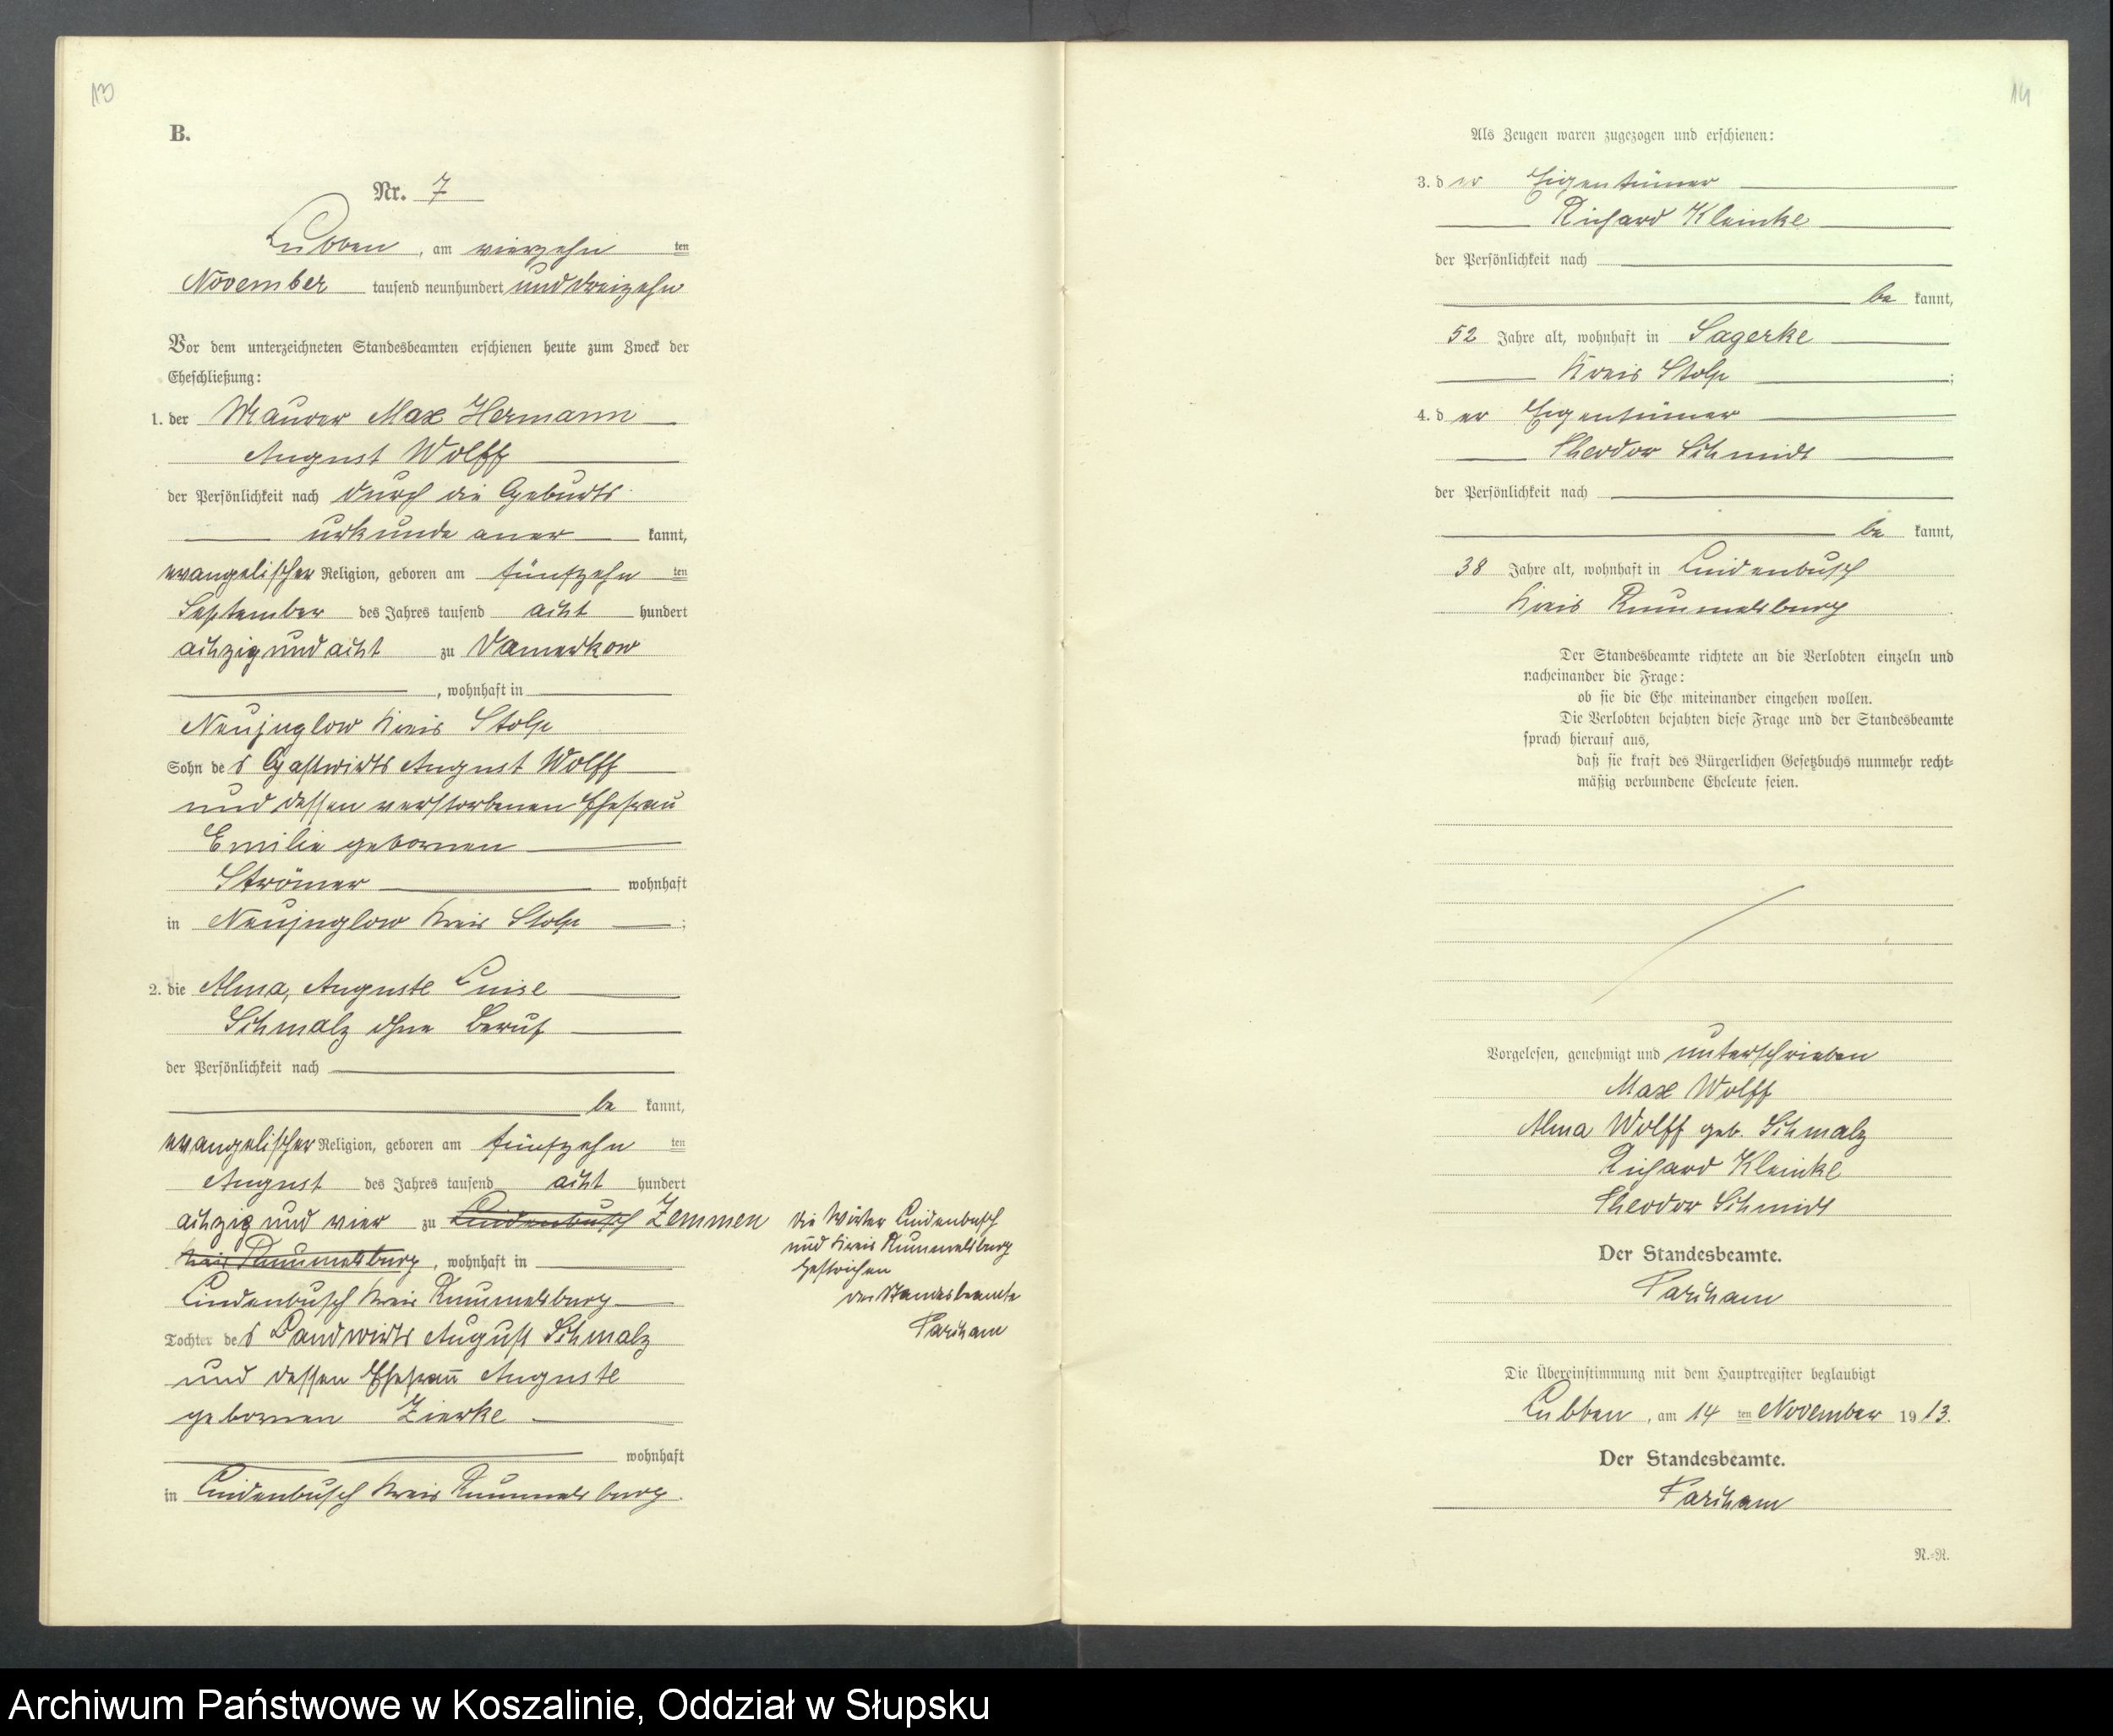 13
B.
Nr. 7
Lubben, am vierzehn ten
November tausend neunhundert und dreizehn
Vor dem unterzeichneten Standesbeamten erschienen heute zum Zweck der
Eheschließung:
1. der Maurer Max Hermann
August Wolff
der Persönlichkeit nach durch die Geburts-
urkunde aner kannt,
evangelischer Religion, geboren am fünfzehn ten
September des Jahres tausend acht hundert
achzig und acht zu Damerkow
, wohnhaft in
Neujuglow Kreis Stolp
Sohn des Gastwirts August Wolff
und dessen verstorbenen Ehefrau
Emilie gebornen
Strömer wohnhaft
in Neujuglow Kreis Stolp ;
2. die Alma, Auguste Luise
Schmalz ohne Beruf
der Persönlichkeit nach
be kannt,
evangelischer Religion, geboren am fünfzehn ten
August des Jahres tausend acht hundert
achzig und vier zu Lindenbusch Zemmen
Kreis Rummelsburg, wohnhaft in
Lindenbusch Kreis Rummelsburg
Tochter des Landwirts August Schmalz
und dessen Ehefrau Auguste
gebornen Zierke
wohnhaft
in Lindenbusch Kreis Rummelsburg.
die Wörter Lindenbusch
und Kreis Rummelsburg
gestrichen
der Standesbeamte
Parcham
14
Als Zeugen waren zugezogen und erschienen:
3. der Eigentümer
Richard Kleinke
der Persönlichkeit nach
be kannt,
52 Jahre alt, wohnhaft in Sagerke
Kreis Stolp ;
4. der Eigentümer
Theodor Schmidt
der Persönlichkeit nach
be kannt,
38 Jahre alt, wohnhaft in Lindenbusch
Kreis Rummelsburg .
Der Standesbeamte richtete an die Verlobten einzeln und
nacheinander die Frage:
ob sie die Ehe miteinander eingehen wollen.
Die Verlobten bejahten diese Frage und der Standesbeamte
sprach hierauf aus,
daß sie kraft des Bürgerlichen Gesetzbuchs nunmehr recht-
mäßig verbundene Eheleute seien.
Vorgelesen, genehmigt und unterschrieben
Max Wolff
Alma Wolff geb. Schmalz
Richard Kleinke
Theodor Schmidt
Der Standesbeamte.
Parcham
Die Übereinstimmung mit dem Hauptregister beglaubigt
Lubben, am 14 ten November 1913.
Der Standesbeamte.
Parcham
N.-R.
Archiwum Państwowe w Koszalinie, Oddział w Słupsku